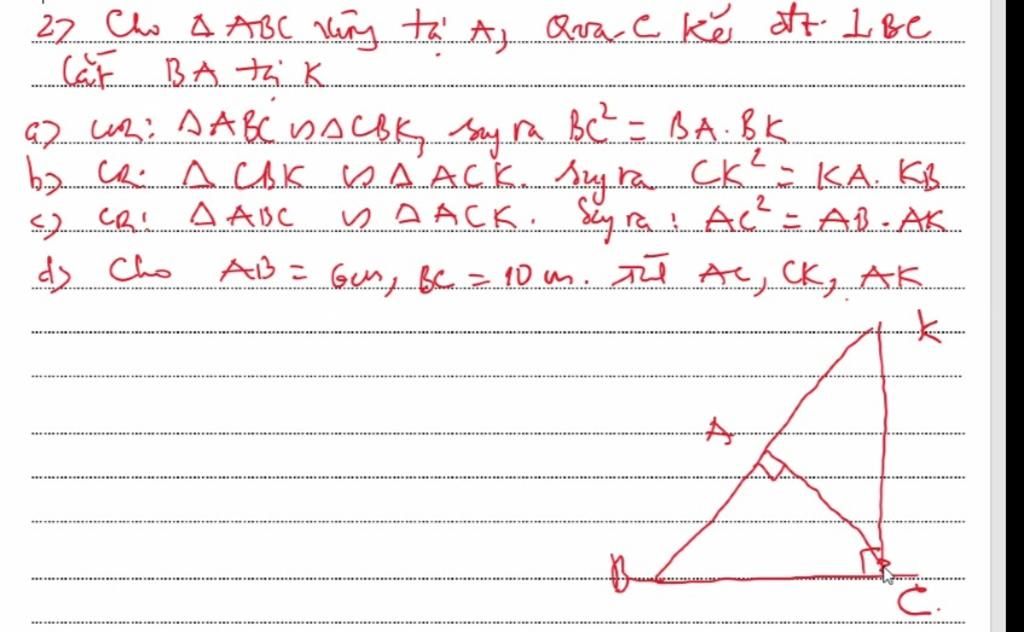 2) Cho Δ ABC vuông tại A, Qua C kẻ đt ⊥ BC
Cắt BA tại K
a) CMR: ΔABC ∽ ΔCBK, suy ra BC² = BA.BK
b) CR: Δ CBK ∽ Δ ACK. suy ra CK² = KA. KB
c) CR: ΔABC ∽ ΔACK. Suy ra: AC² = AB.AK
d) Cho AB = 6cm, BC = 10 cm. Tính AC, CK, AK
K
A
B
C.